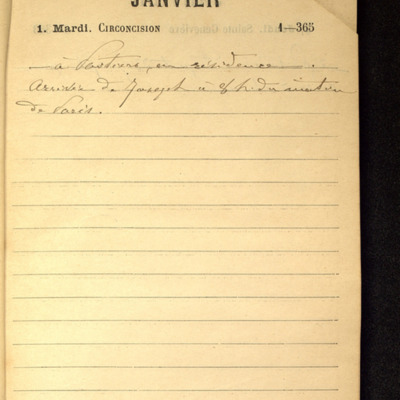 JANVIER
1. Mardi. CIRCONCISION 1—365
à en résidence.
arrivée de Joseph à 8 h. du matin
de Paris.